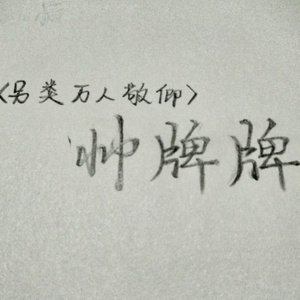 <另类万人敬仰>
帅牌牌